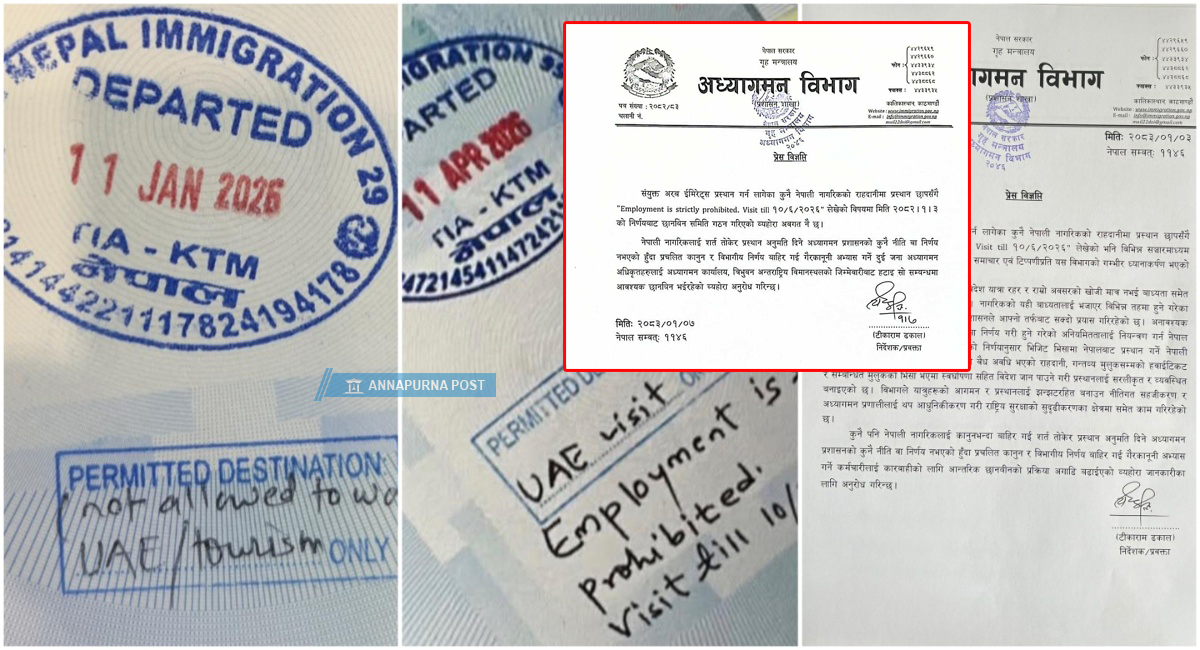 NEPAL IMMIGRATION 29
DEPARTED
11 JAN 2026
TIA - KTM
नेपाल
PERMITTED DESTINATION:
not allowed to
UAE/tourism ONLY
11 APR 2026
TIA - KTM
नेपाल
UAE visit
Employment is
prohibited.
visit till 10/
ANNAPURNA POST
नेपाल सरकार
गृह मन्त्रालय
अध्यागमन विभाग
(प्रशासन शाखा)
पत्र संख्या : २०८२/८३
चलानी नं.
फोन :
कालिकास्थान काठमाण्डौं
Website : www.immigration.gov.np
E-mail : info@immigration.gov.np
प्रेस विज्ञप्ति
संयुक्त अरब ईमिरेट्स प्रस्थान गर्न लागेका कुनै नेपाली नागरिकको राहदानीमा प्रस्थान छापसँगै
"Employment is strictly prohibited. Visit till १०/६/२०२६" लेखेको विषयमा मिति २०८२।१।३
को निर्णयबाट छानविन समिति गठन गरिएको व्यहोरा अवगत नै छ।
नेपाली नागरिकलाई शर्त तोकेर प्रस्थान अनुमति दिने अध्यागमन प्रशासनको कुनै नीति वा निर्णय
नभएको हुँदा प्रचलित कानुन र विभागीय निर्णय बाहिर गई गैरकानूनी अभ्यास गर्ने दुई जना अध्यागमन
अधिकृतहरुलाई अध्यागमन कार्यालय, त्रिभुवन अन्तराष्ट्रिय विमानस्थलको जिम्मेवारीबाट हटाइ सो सम्बन्धमा
आवश्यक छानविन भईरहेको व्यहोरा अनुरोध गरिन्छ।
मितिः २०८३/०१/०७
नेपाल सम्वत् ११४६
(टीकाराम ढकाल)
निर्देशक/प्रवक्ता
नेपाल सरकार
गृह मन्त्रालय
गमन विभाग
(प्रशासन शाखा)
कालिकास्थान काठमाण्डौं
Website : www.immigration.gov.np
E-mail : info@immigration.gov.np
मितिः २०८३/०१/०३
नेपाल सम्वत्ः ११४६
प्रेस विज्ञप्ति
लागेका कुनै नेपाली नागरिकको राहदानीमा प्रस्थान छापसँगै
Visit till १०/६/२०२६" लेखेको भनि विभिन्न सञ्चारमाध्यम
समाचार एवं टिप्पणीप्रति यस विभागको गम्भीर ध्यानाकर्षण भएको
यात्रा रहर र राम्रो अवसरको खोजी मात्र नभई बाध्यता समेत
नागरिकको यही बाध्यतालाई भजाएर विभिन्न तहमा हुने गरेका
आफ्नो तर्फबाट सक्दो प्रयास गरिरहेको छ। अनावश्यक
निर्णय गरी हुने गरेको अनियमिततालाई नियन्त्रण गर्न नेपाल
को निर्णयानुसार भिजिट भिसामा नेपालबाट प्रस्थान गर्ने नेपाली
बैध अवधि भएको राहदानी, गन्तव्य मुलुकसम्मको हवाईटिकट
र सम्बन्धित मुलुकको भिसा भएमा स्वघोषणा सहित विदेश जान पाउने गरी प्रस्थानलाई सरलीकृत र व्यवस्थित
बनाइएको छ। विभागले यात्रुहरूको आगमन र प्रस्थानलाई झन्झटरहित बनाउन नीतिगत सहजीकरण र
अध्यागमन प्रणालीलाई थप आधुनिकीकरण गरी राष्ट्रिय सुरक्षाको सुदृढीकरणका क्षेत्रमा समेत काम गरिरहेको
छ।
कुनै पनि नेपाली नागरिकलाई कानुनभन्दा बाहिर गई शर्त तोकेर प्रस्थान अनुमति दिने अध्यागमन
प्रशासनको कुनै नीति वा निर्णय नभएको हुँदा प्रचलित कानुन र विभागीय निर्णय बाहिर गई गैरकानूनी अभ्यास
गर्ने कर्मचारीलाई कारवाहीको लागि आन्तरिक छानवीनको प्रक्रिया अगाडि बढाईएको व्यहोरा जानकारीका
लागि अनुरोध गरिन्छ।
(टीकाराम ढकाल)
निर्देशक/प्रवक्ता